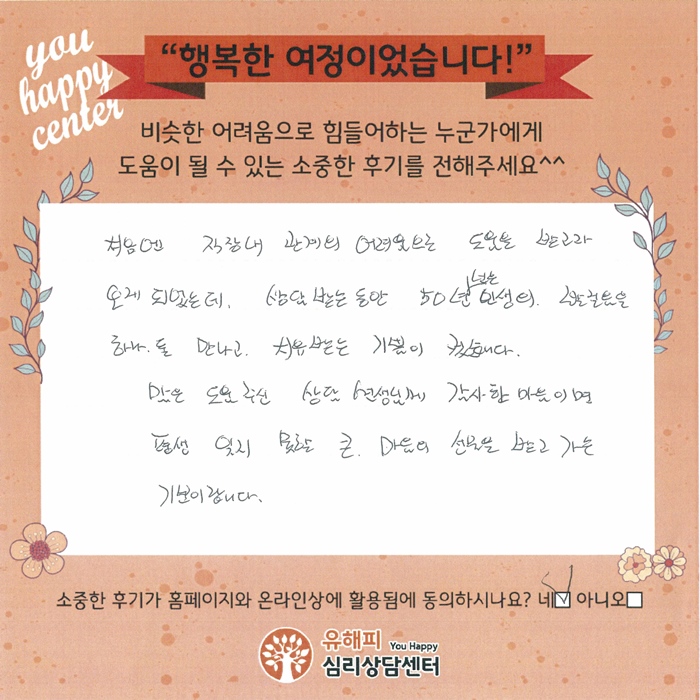 you
happy
center
“행복한 여정이었습니다!”
비슷한 어려움으로 힘들어하는 누군가에게
도움이 될 수 있는 소중한 후기를 전해주세요^^
처음엔 직장내 관계의 어려움으로 도움을 받고자
오게 되었는데, 상담 받는 동안 50년 넘은 인생의 발걸음을
하나.둘 만나고, 치유받는 기쁨이 컸습니다.
많은 도움 주신 상담 선생님께 감사한 마음이며
평생 잊지 못할 큰 마음의 선물을 받고 가는
기분이랍니다.
소중한 후기가 홈페이지와 온라인상에 활용됨에 동의하시나요? 네☑ 아니오☐
유해피 You Happy
심리상담센터